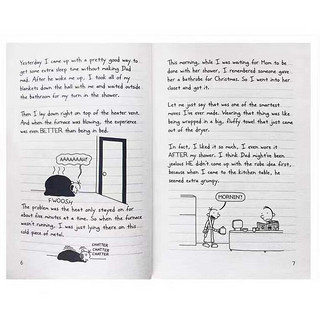 Yesterday I came up with a pretty good way to
get some extra sleep time without making Dad
mad. After he woke me up, I took all of my
blankets down the hall with me and waited outside
the bathroom for my turn in the shower.
Then I lay down right on top of the heater vent.
And when the furnace was blowing, the experience
was even BETTER than being in bed.
AAAAAAAH!
FWOOSH
The problem was the heat only stayed on for
about five minutes at a time. So when the furnace
wasn't running, I was just lying there on this
cold piece of metal.
CHATTER
CHATTER
CHATTER
6
This morning, while I was waiting for Mom to be
done with her shower, I remembered someone gave
her a bathrobe for Christmas. So I went into her
closet and got it.
Let me just say that was one of the smartest
moves I've ever made. Wearing that thing was like
being wrapped in a big, fluffy towel that just came
out of the dryer.
In fact, I liked it so much, I even wore it
AFTER my shower. I think Dad might've been
jealous HE didn't come up with the robe idea first,
because when I came to the kitchen table, he
seemed extra grumpy.
MORNIN'!
7